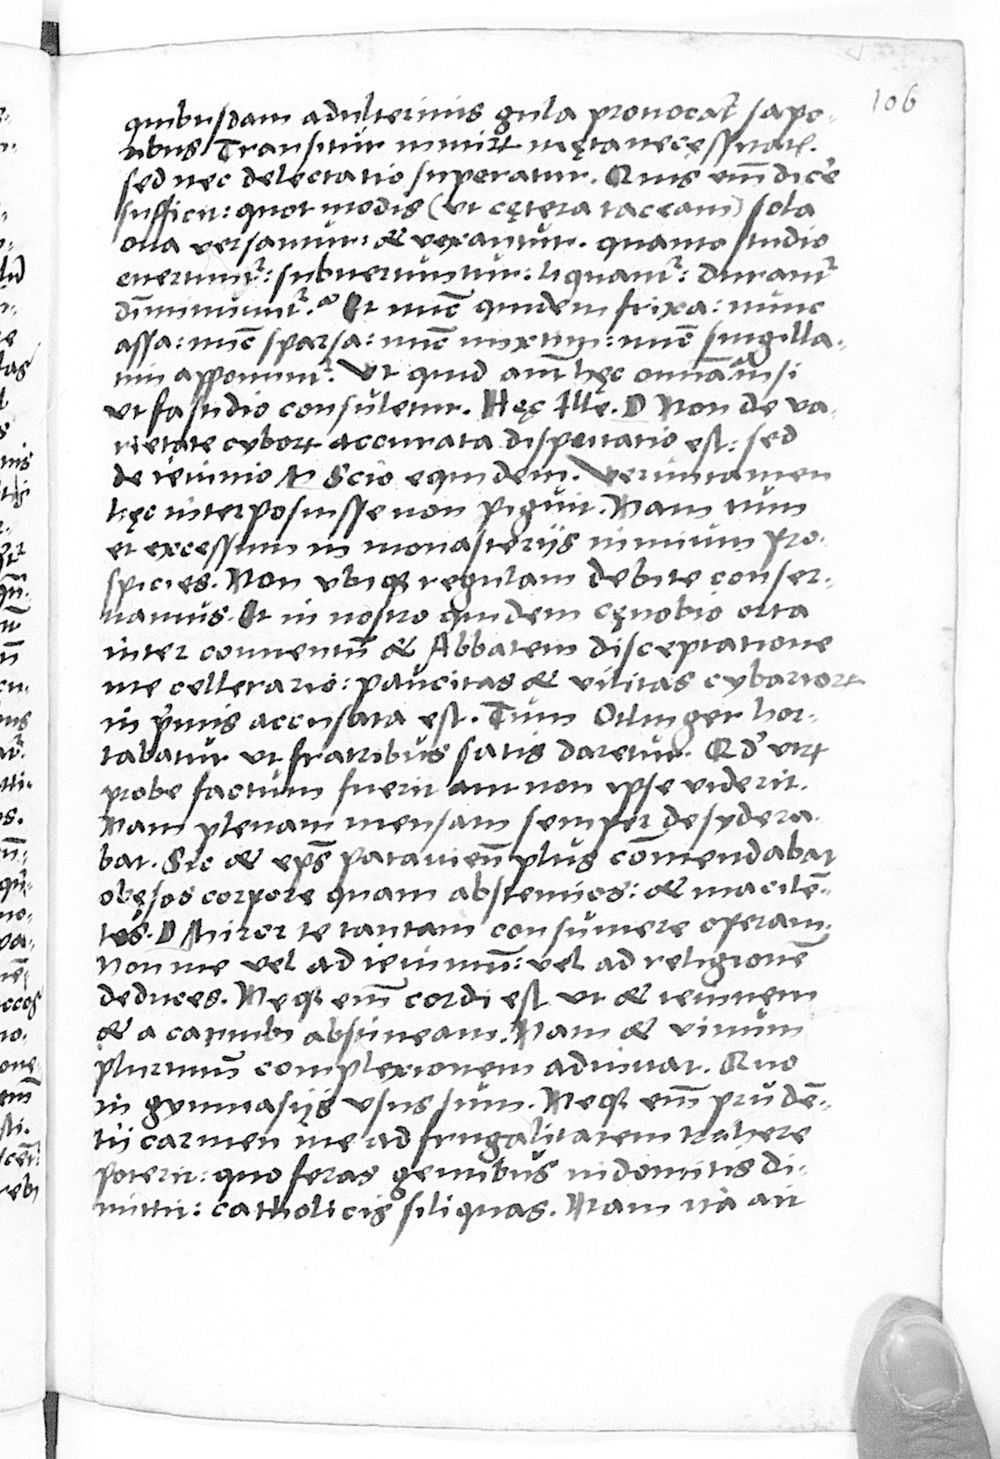 106
quibusdam adulterinis gula prouocat᷑ sapo-
ribus Transitur nimiꝝ meta necessitatꝭ.
sed nec delectatio superatur. Quis em̄ dicẽ
sufficit: quot modis (ut cętera taceam) sola
oua versantur: & vexantur. quanto studio
euertunt᷑: subuertuntur: liquant᷑: durant᷑
dĩminuunt᷑. Et nũc quidem frixa: nunc
assa: nũc sparsa: nũc mixtim: nũc singilla-
tim apponunt᷑. Ut quid aut̄ hęc omnia: nisi
ut fastidio consuletur. Hęc Ille. D Non de va-
rietate cyboꝝ accurata disputatio est: sed
de ieiunio N Scio equidem. Veruntamen
hęc interposuisse non piguit. Nam tum
et excessum in monasterijs nimium pro-
spicies. Non ubiqꝫ regulam debite conser-
uamus. Et in nostro quidem cęnobio orta
inter conuentũ & Abbatem disceptatione
me cellerario: paucitas & vilitas cybarioꝝ
in p̃mis accusata est. Tum Otlinger hor-
tabatur ut fratribus satis daretur. Qd' utꝝ
probe factum fuerit aut non ipse viderit.
Nam plenam mensam semper desydera-
bat. Sic & ep̃s patauieñ plus cõmendabat
obęsos corpore quam abstemios: & macilẽ-
tes. D Miror te tantam consumere operam.
Non me vel ad ieiuniũ: vel ad religionẽ
deduces. Neqꝫ em̄ cordi est ut & ieiunem
& a carnibꝫ abstineam. Nam & vinum
plurimũ complexionem adiuuat. Quo
in gymnasijs usus sum. Neqꝫ em̄ prudẽ-
tij carmen me ad frugalitatem trahere
poterit: quo feras gentibus indomitis di-
mittit: catholicis siliquas. Nam ita ait